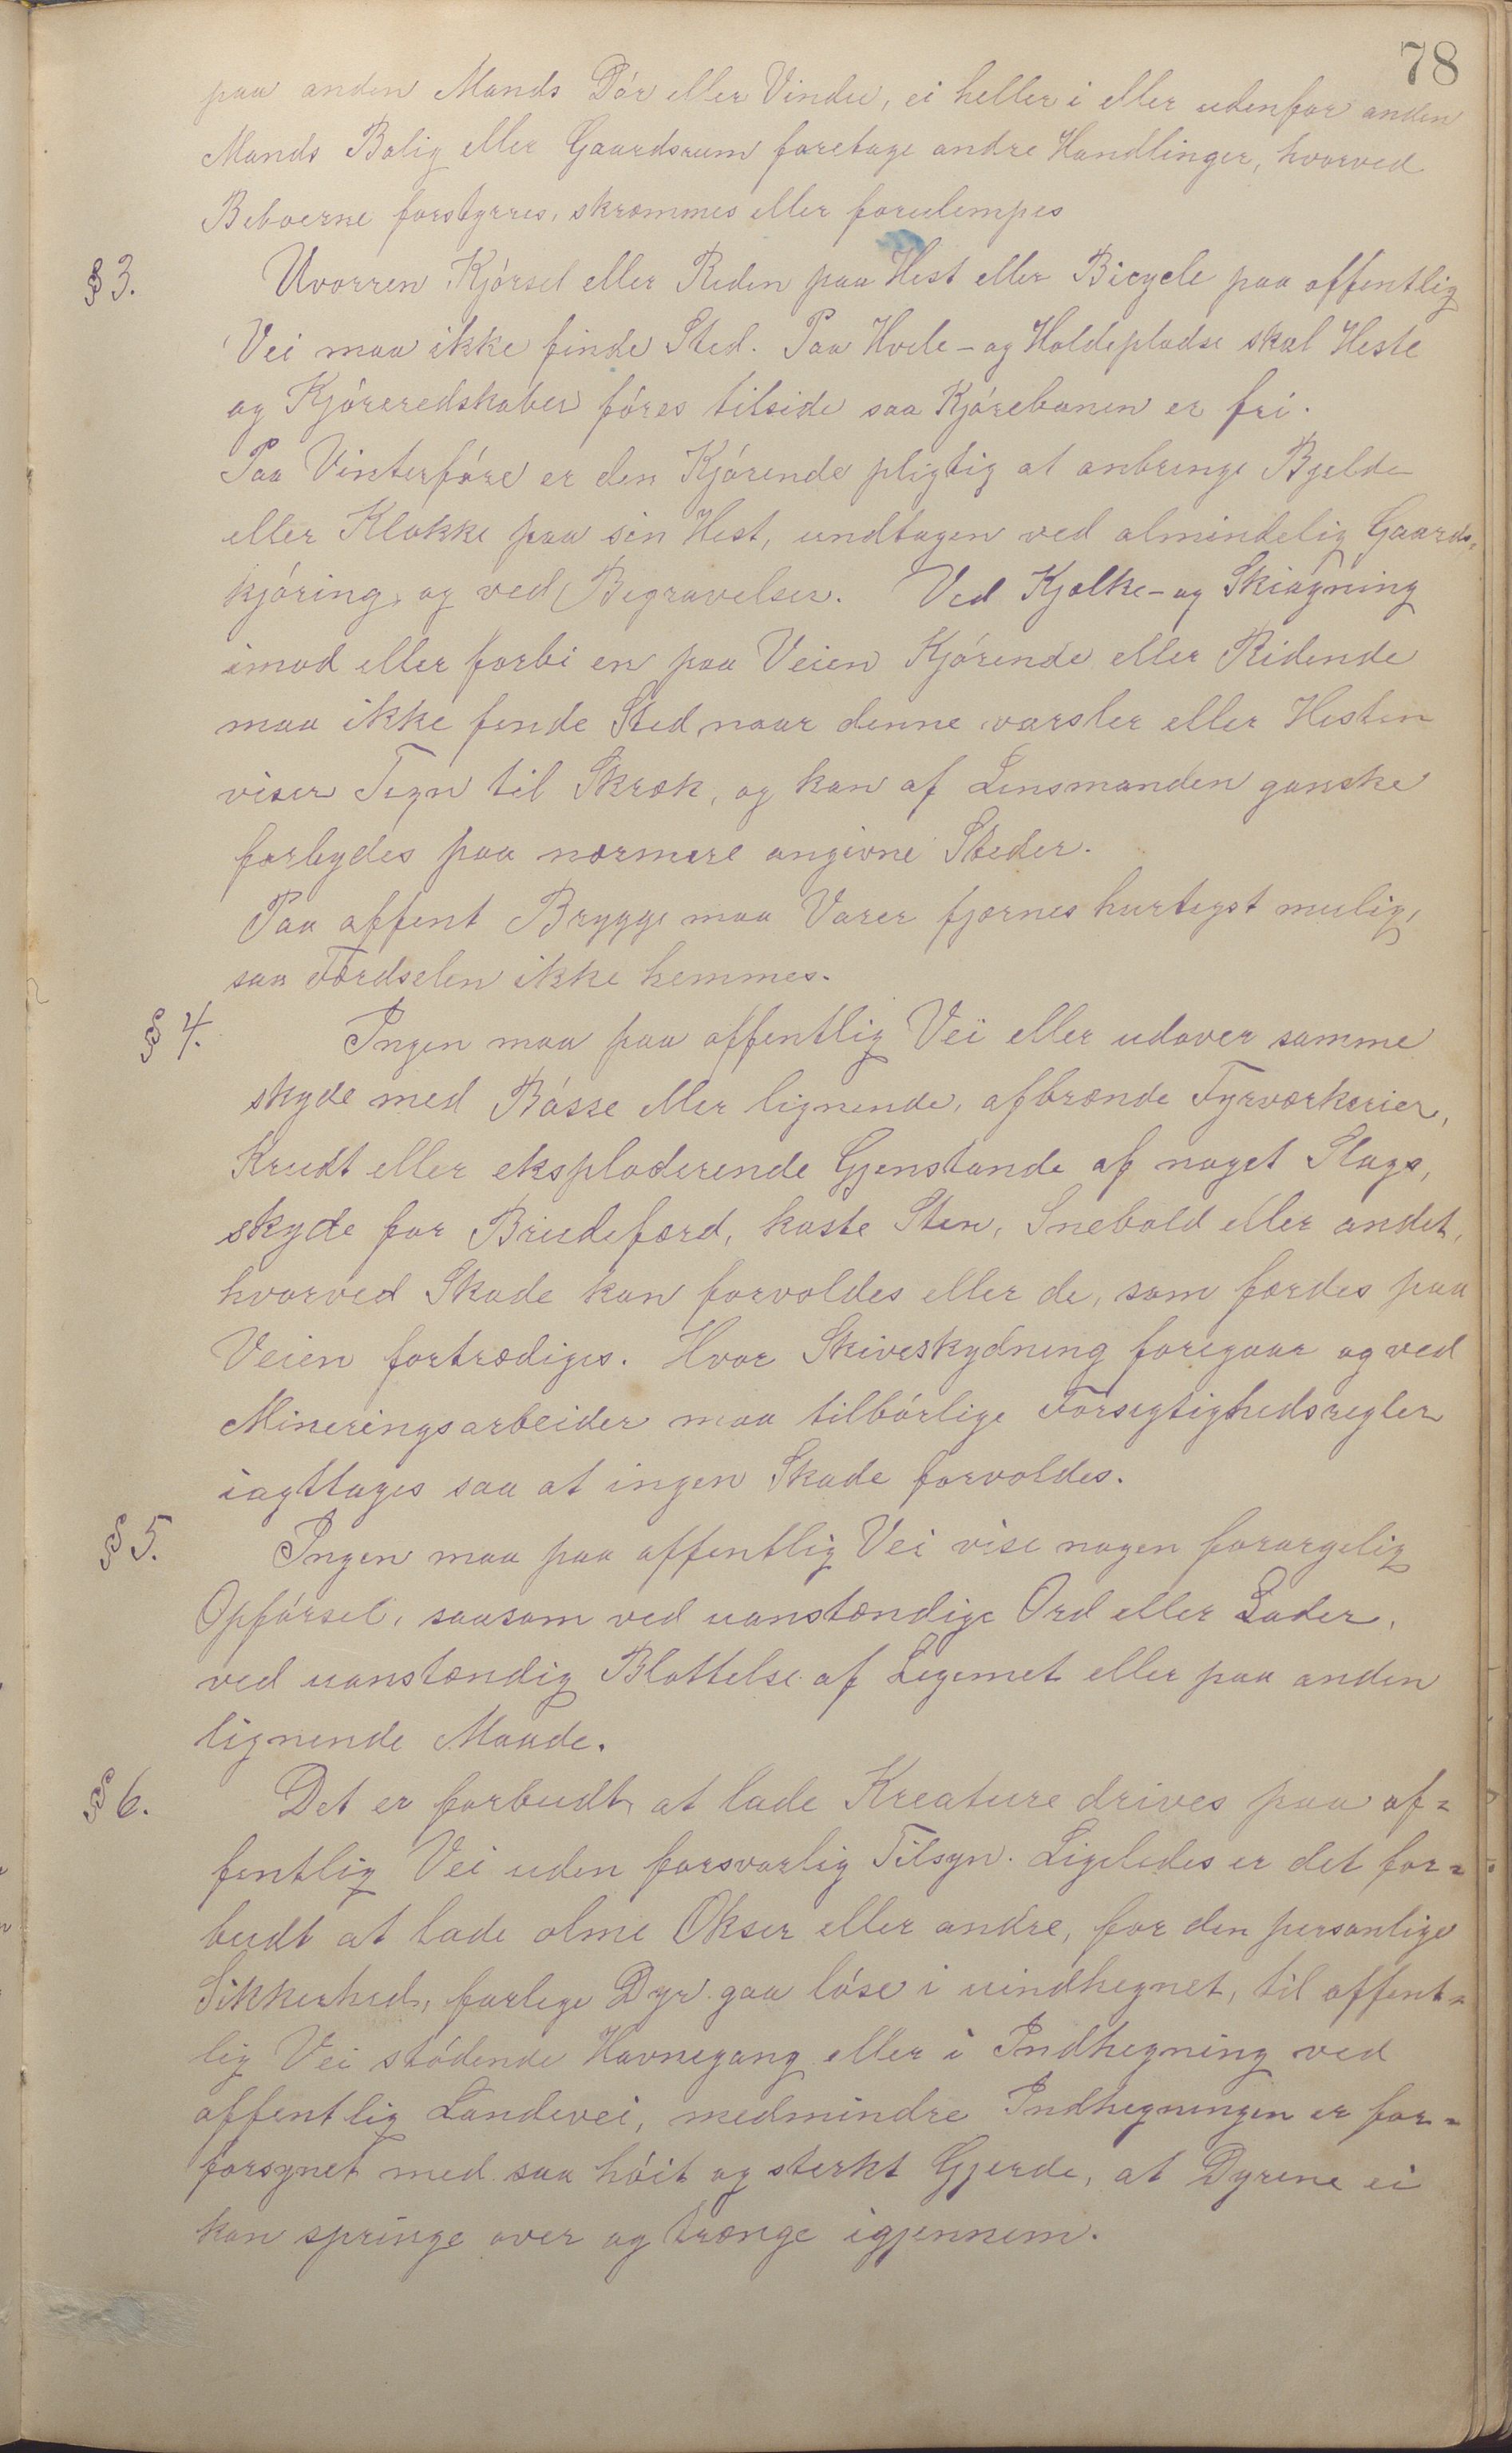 78
paa anden Mands Dór eller Vindu, ei heller i eller udenfor anden
Mands Bolig eller Gaardsrum foretage andre Handlinger, hvorved
Beboerne forstyrres, skræmmes eller forulempes
§ 3. Uvorren Kjórsel eller Riden paa Hest eller Bicycle paa offentlig
Vei maa ikke finde Sted. Paa Hvile- og Holdepladse skal Heste
og Kjóreredskaber fóres tilside saa Kjórebanen er fri.
Paa Vinterfóre er den Kjórende pligtig at anbringe Bjelde
eller Klokke paa sin Hest, undtagen ved almindelig Gaards-
kjóring, og ved Begravelser. Ved Kjælke- og Skiagning
imod eller forbi en paa Veien Kjórende eller Ridende
maa ikke finde Sted naar denne varsler eller Hesten
viser Tegn til Skræk, og kan af Lensmanden ganske
forbydes paa nærmere angivne Steder.
Paa offent Brygge maa Varer fjernes hurtigst mulig,
saa Færdselen ikke hemmes.
§ 4. Ingen maa paa offentlig Vei eller udover samme
skyde med Bósse eller lignende, afbrænde Fyrværkerier,
Krudt eller eksploderende Gjenstande af noget Slags,
skyde for Brudefærd, kaste Sten, Snebold eller andet,
hvorved Skade kan forvoldes eller de, som færdes paa
Veien fortrædiges. Hvor Skiveskydning foregaar og ved
Mineringsarbeider maa tilbórlige Forsigtighedsregler
iagttages saa at ingen Skade forvoldes.
§ 5. Ingen maa paa offentlig Vei vise nogen forargelig
Opfórsel, saasom ved uanstændige Ord eller Lader,
ved uanstændig Blottelse af Legemet eller paa anden
lignende Maade.
§ 6. Det er forbudt at lade Kreature drives paa of-
fentlig Vei uden forsvarlig Tilsyn. Ligeledes er det for-
budt at lade olme Okser eller andre, for den personlige
Sikkerhed, farlige Dyr gaa lóse i uindhegnet, til offent-
lig Vei stódende Havnegang eller i Indhegning ved
offentlig Landevei, medmindre Indhegningen er for-
forsynet med saa hóit og sterkt Gjerde, at Dyrene ei
kan springe over og trænge igjennem.